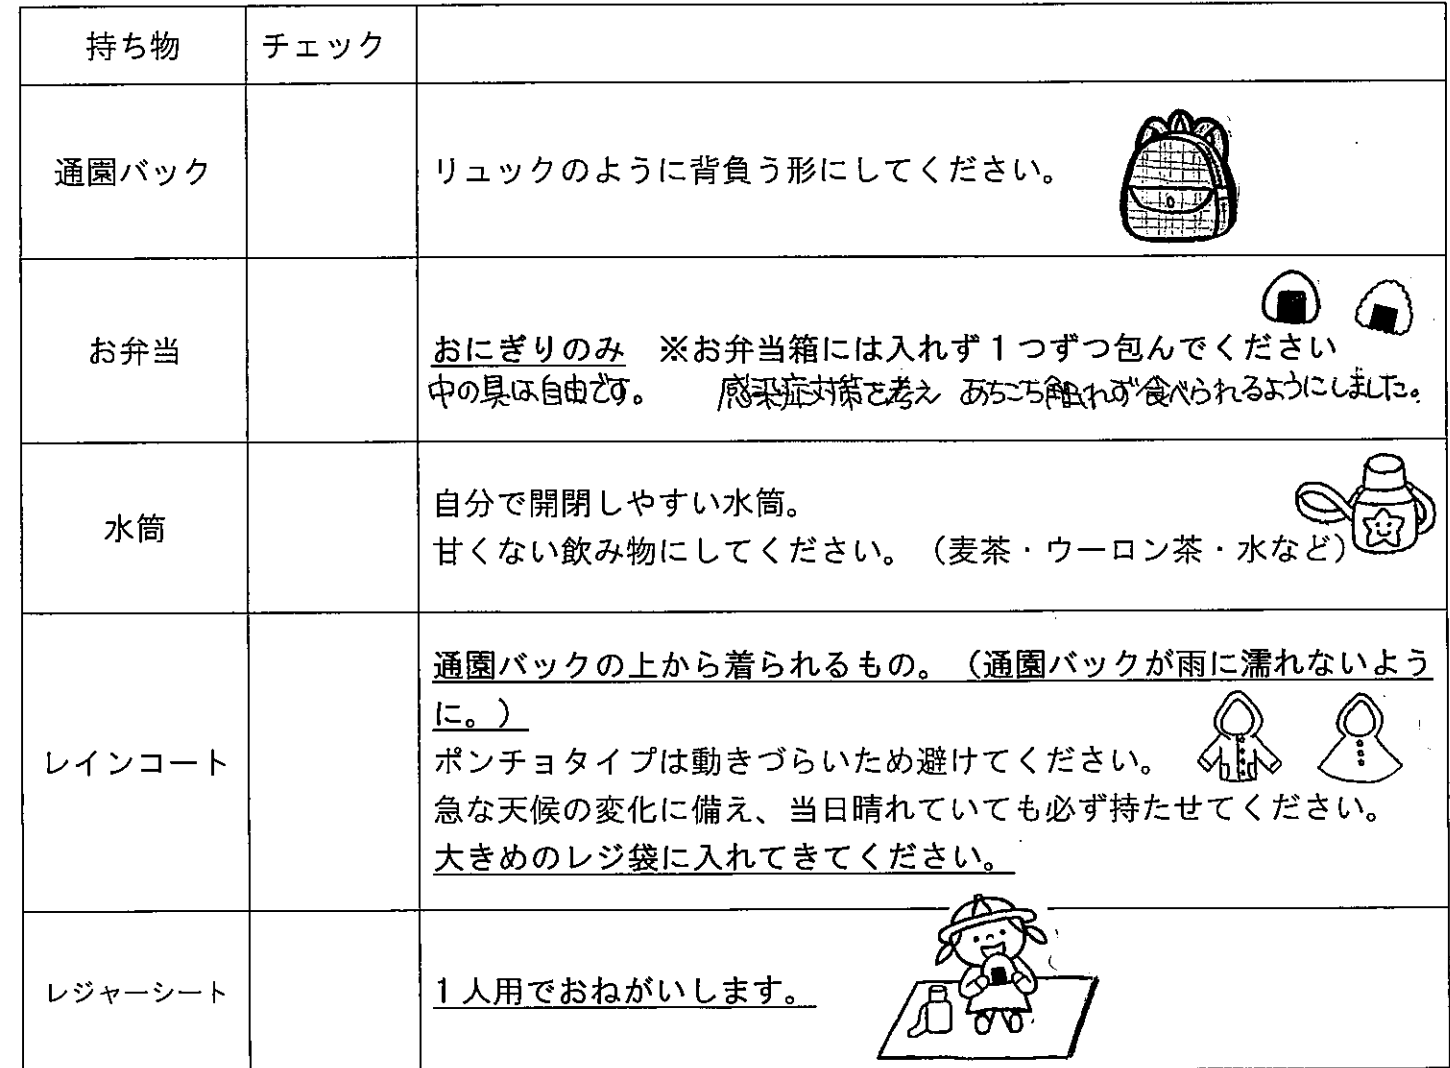 持ち物 チェック
通園バック リュックのように背負う形にしてください。
お弁当 おにぎりのみ ※お弁当箱には入れず1つずつ包んでください
中の具は自由です。 感染症対策を考え あちこち触れず食べられるようにしました。
水筒 自分で開閉しやすい水筒。
甘くない飲み物にしてください。（麦茶・ウーロン茶・水など）
レインコート 通園バックの上から着られるもの。（通園バックが雨に濡れないよう
に。）
ポンチョタイプは動きづらいため避けてください。
急な天候の変化に備え、当日晴れていても必ず持たせてください。
大きめのレジ袋に入れてきてください。
レジャーシート 1人用でおねがいします。